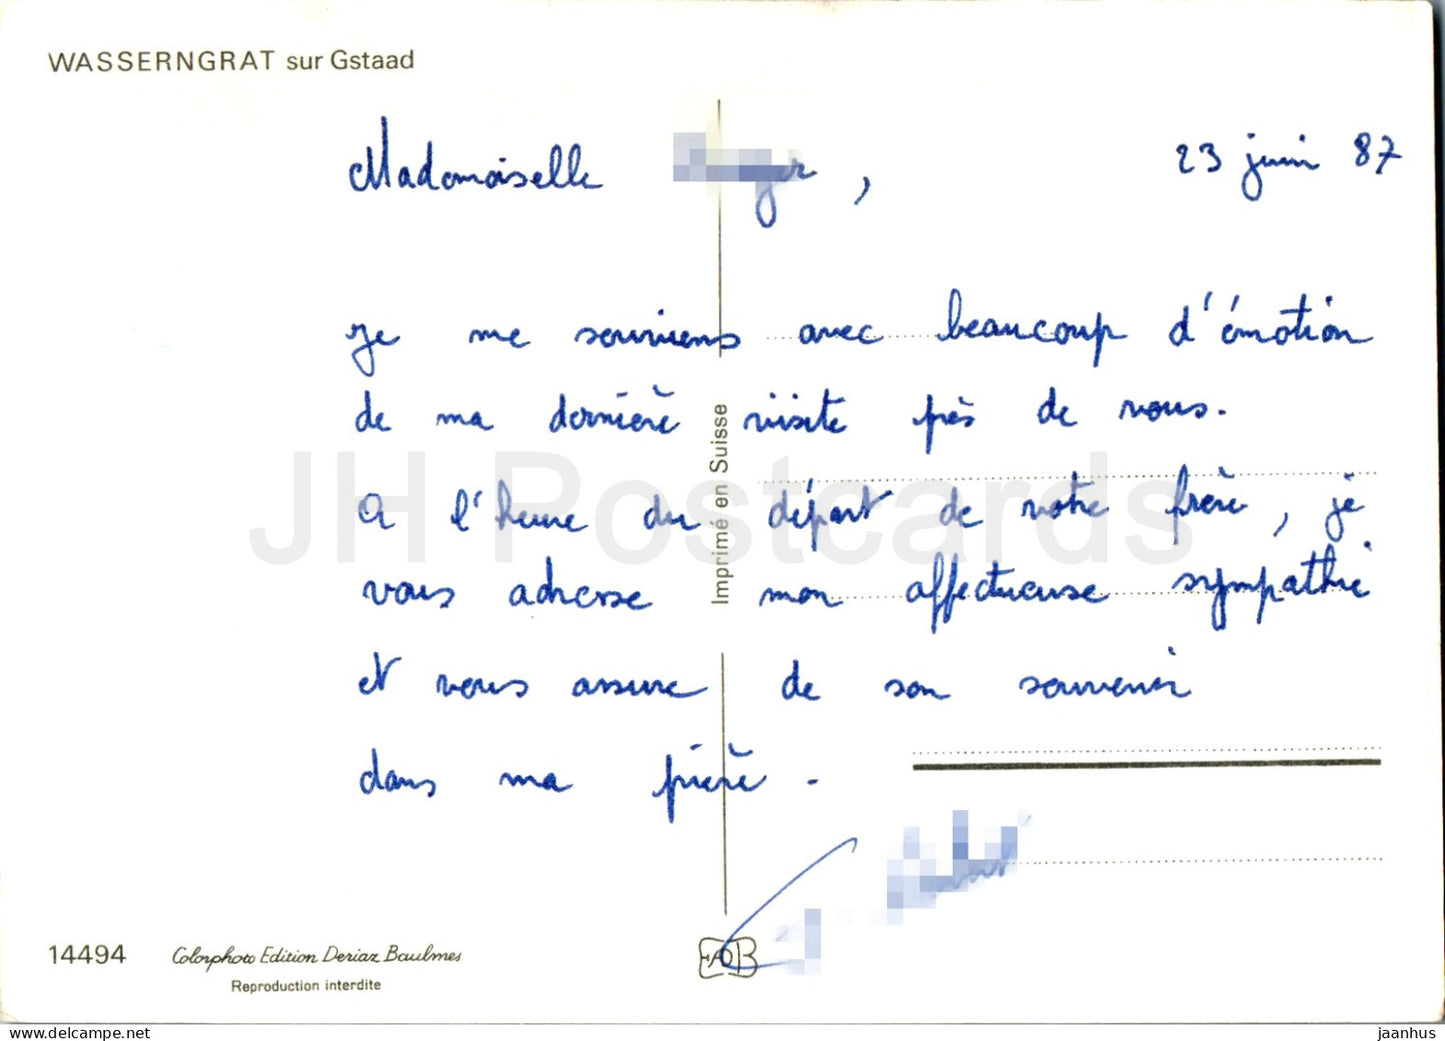 WASSERNGRAT sur Gstaad
Mademoiselle ,
23 juin 87
je me souviens avec beaucoup d'émotion
de ma dernière visite près de vous.
A l'heure du départ de votre frère, je
vous adresse mon affectueuse sympathie
et vous assure de son souvenir
dans ma prière.
Imprimé en Suisse
JH Postcards
14494 Colorphoto Edition Deriaz Baulmes
Reproduction interdite
www.delcampe.net
jaanhus